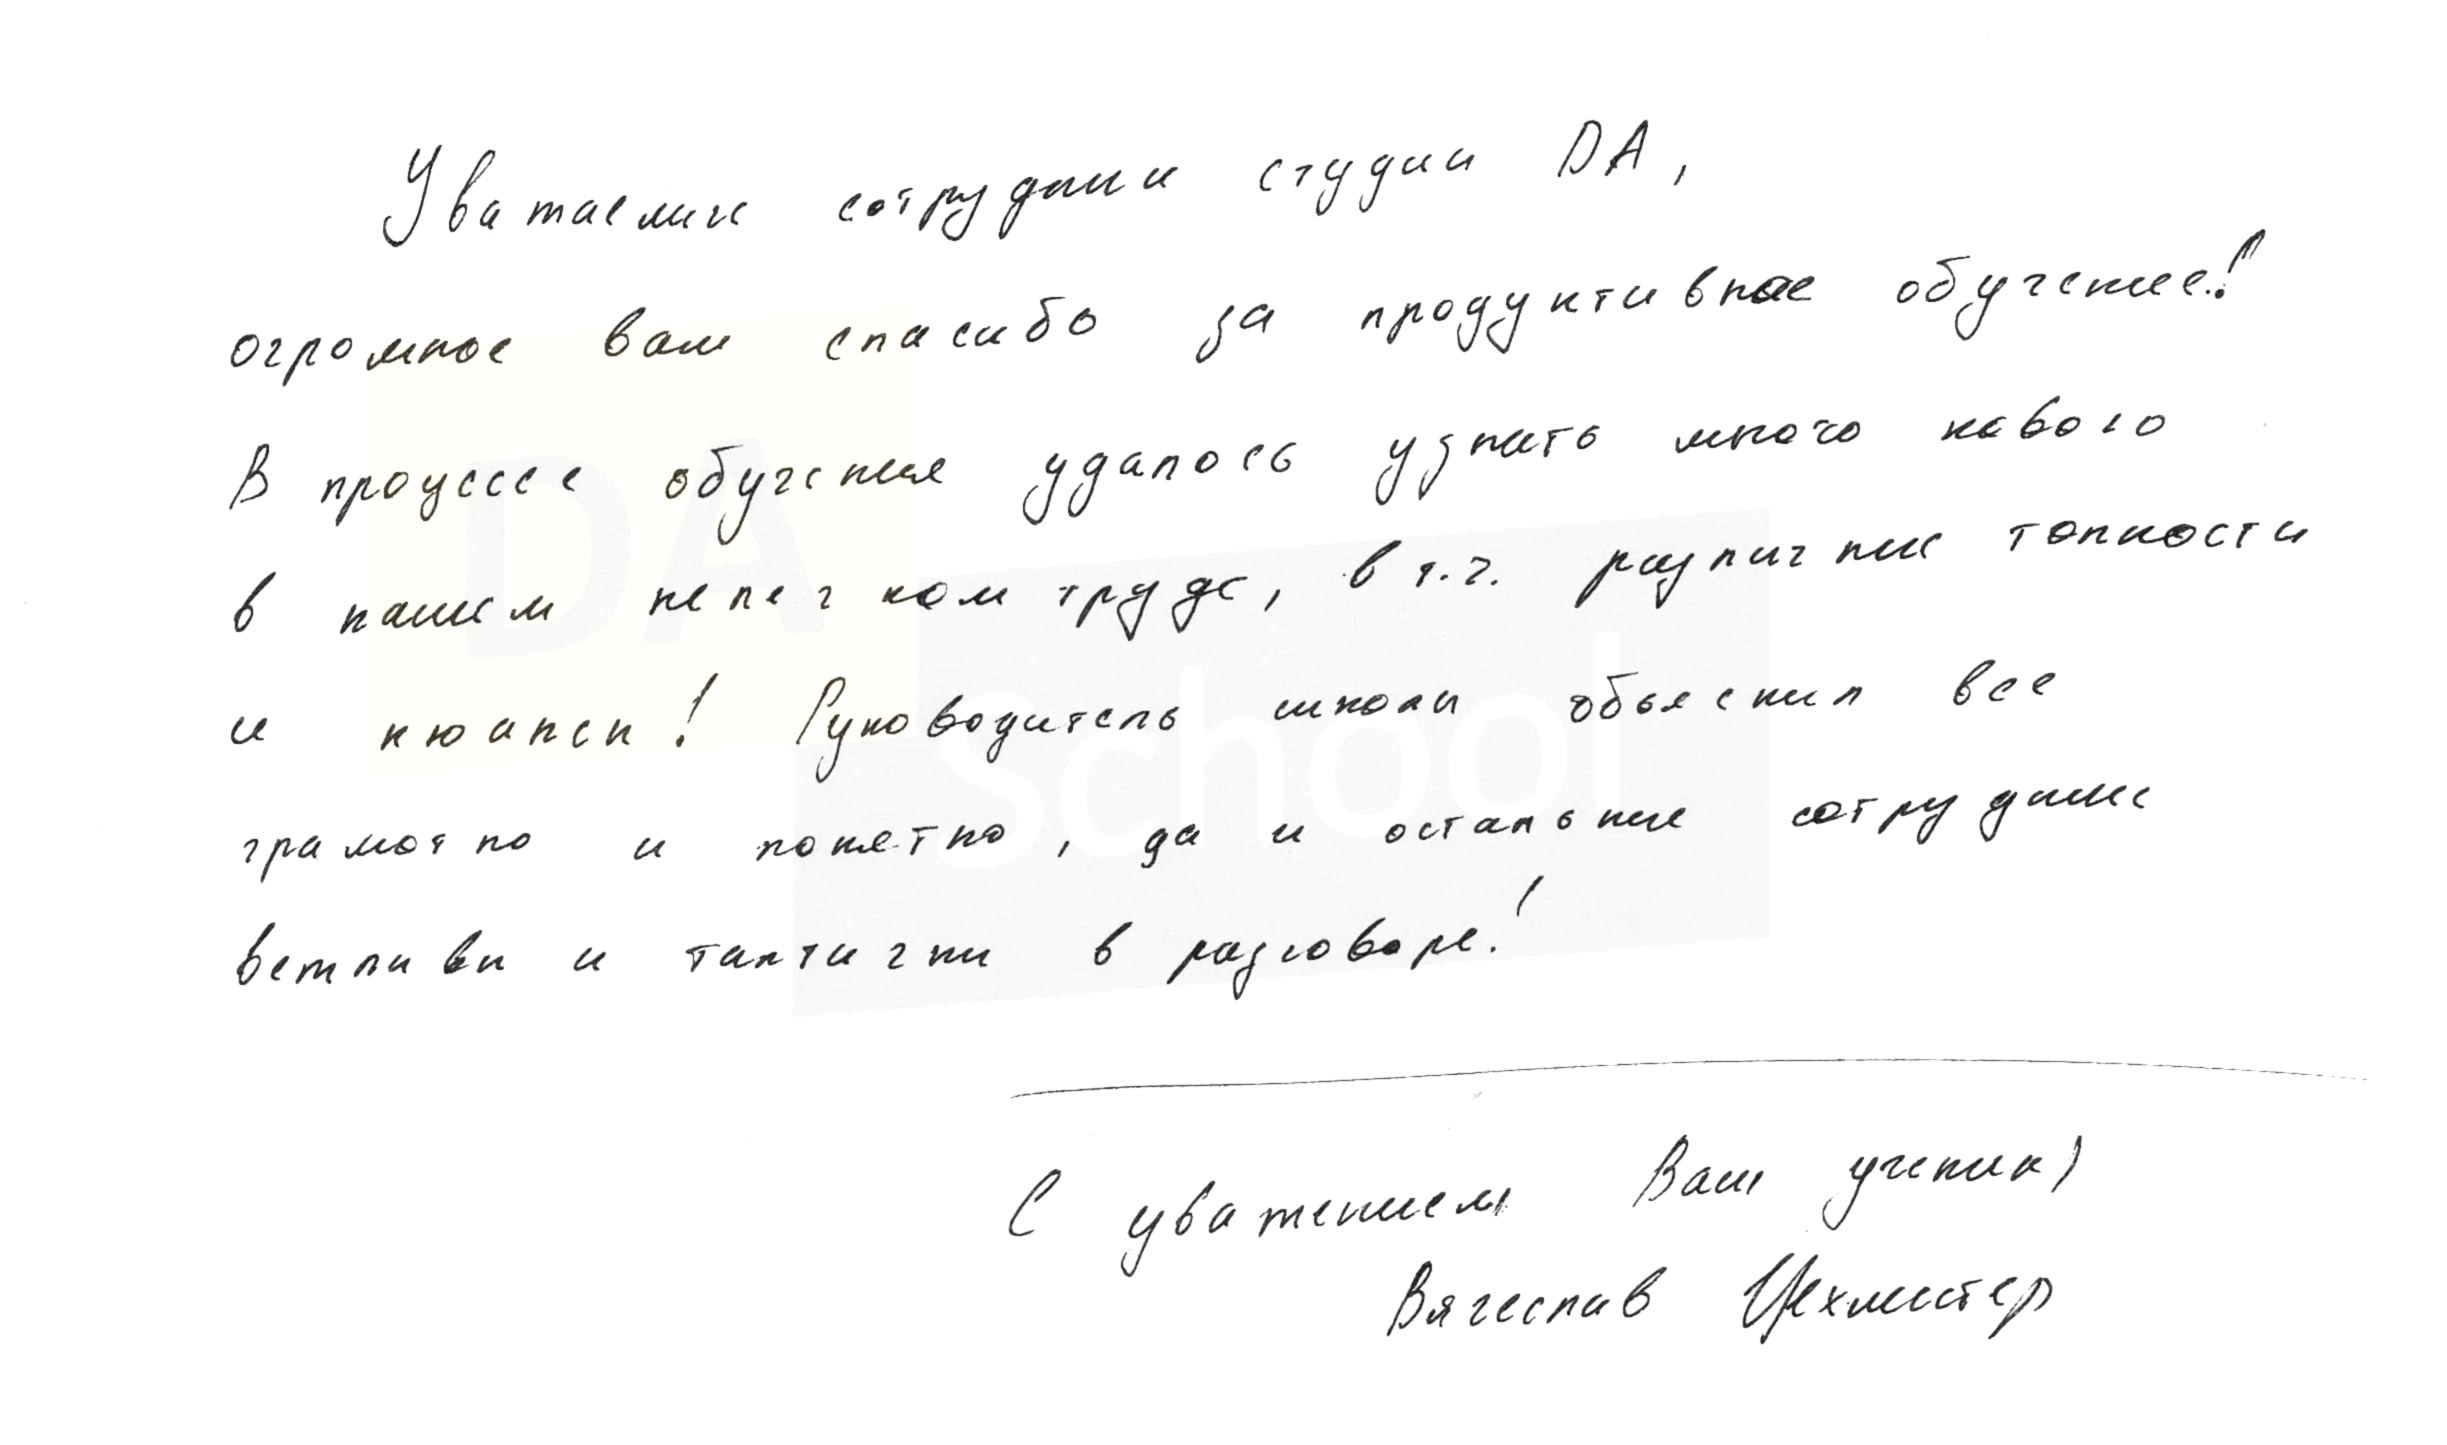 Уважаемые сотрудники студии DA,
огромное вам спасибо за продуктивное обучение!
В процессе обучения удалось узнать много нового
в нашем нелегком труде, в т.ч. различные тонкости
и нюансы! Руководитель школы объяснил все
грамотно и понятно, да и остальные сотрудники
вежливы и тактичны в разговоре!
С уважением Ваш ученик)
Вячеслав Цехмистер
DA
School